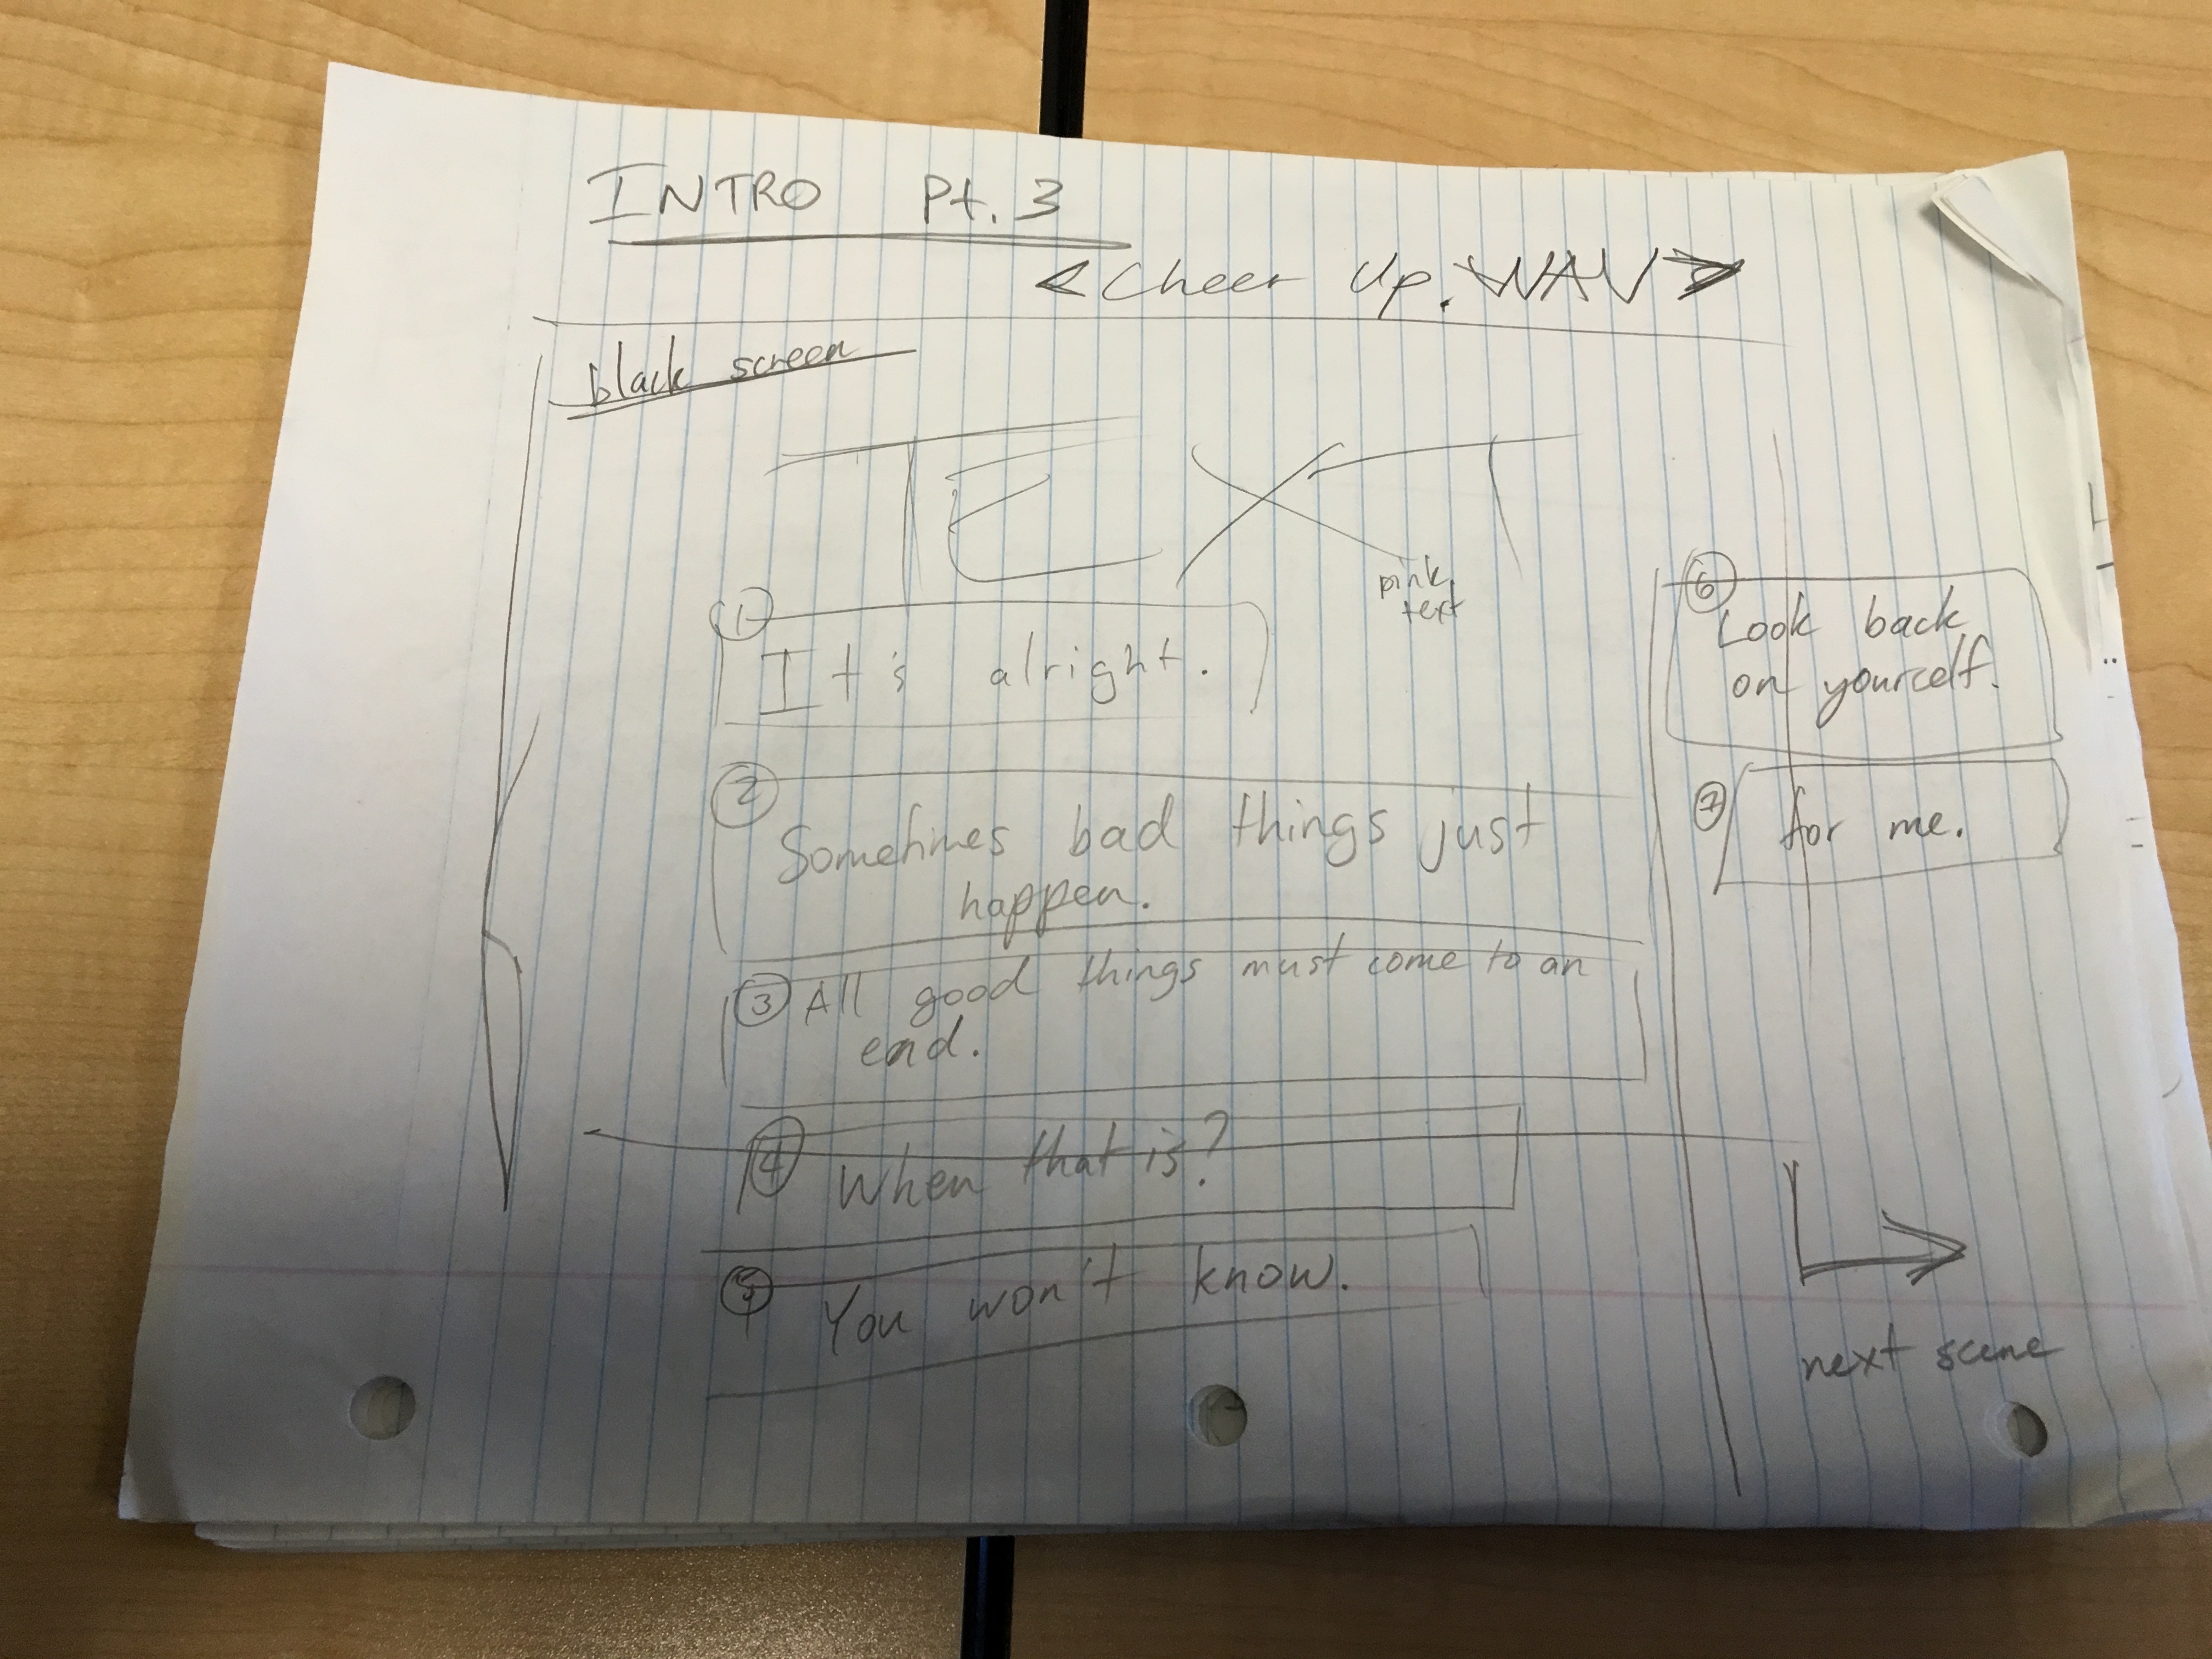 INTRO Pt. 3
<Cheer Up.WAV>
black screen
TEXT
pink
text
1
It's alright.
2
Sometimes bad things just
happen.
3 All good things must come to an
end.
4 When that is?
5 You won't know.
6
Look back
on yourself.
7 for me.
next scene